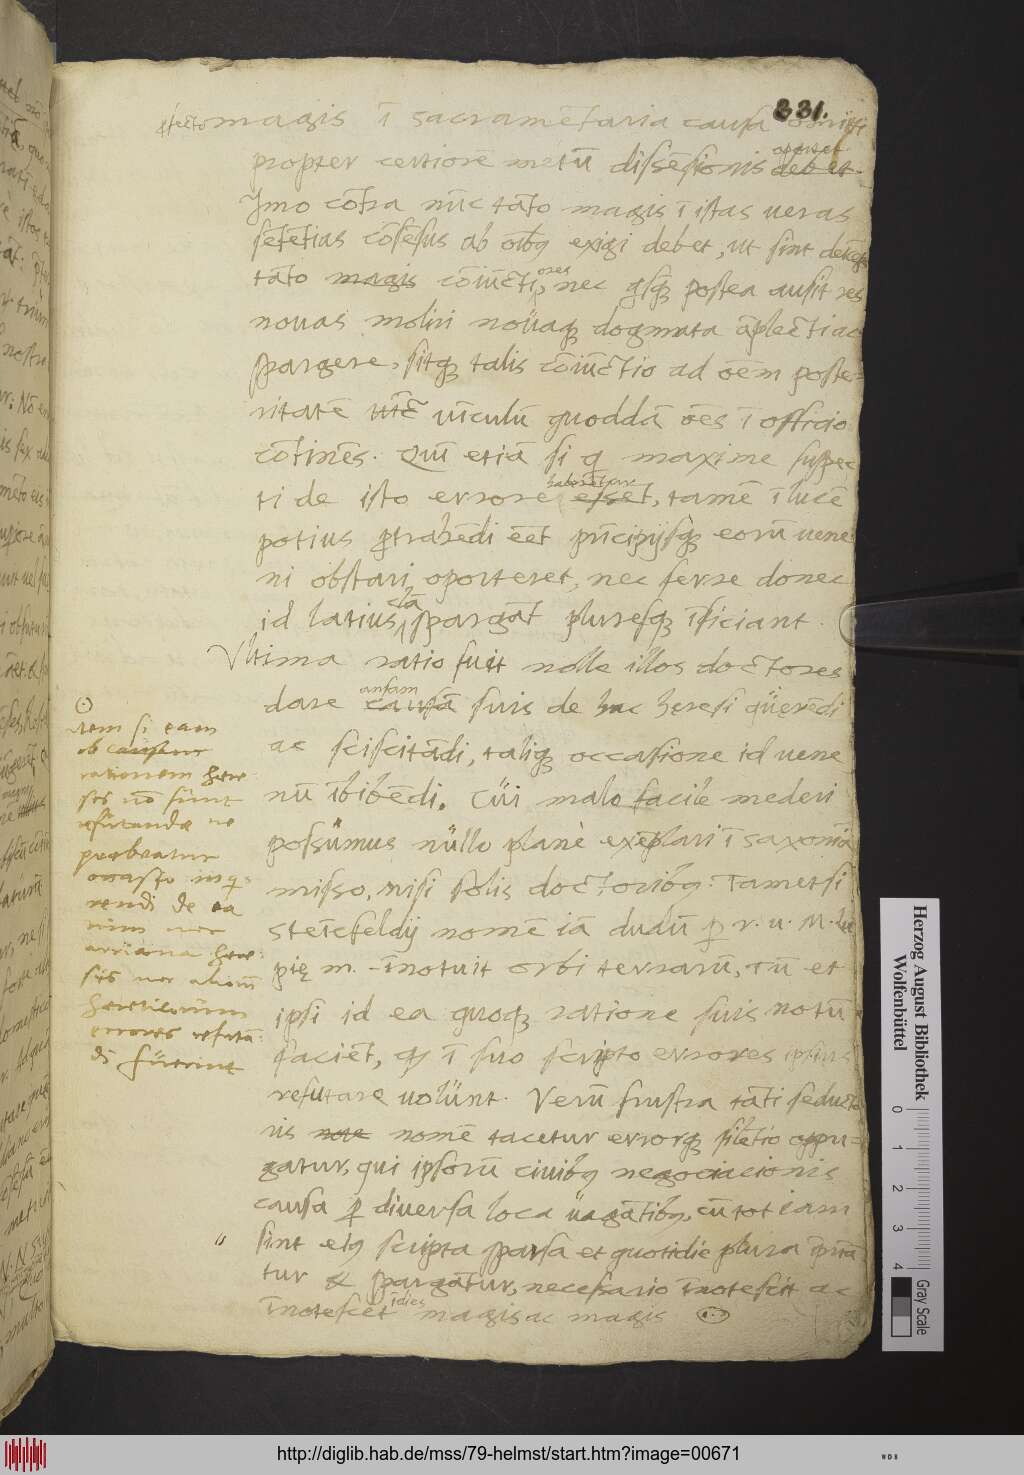 331.
magis ī sacramētaria causa omitti
oportet
propter certiorē metū dissēsionis debet.
Imo cōtra nūc tāto magis ī istas veras
sētētias cōsēsus ab oībꝫ exigi debet, ut sint
tāto magis cōiūcti, nec qsqꝫ postea ausit res
novas moliri novaqꝫ dogmata āplecti ac
spargere, sitqꝫ talis cōiūctio ad oēm poste-
ritatē vīculū quoddā oēs ī officio
cōtinēs. Qui etiā si q maxime suspec
haberētur
ti de isto errore esset, tamē ī lucē
potius ꝑtrahēdi eēt prīcipijsqꝫ eorū vene
ni obstari oporteret, nec ferre donec
clā
id latius spargāt pluresqꝫ īficiant.
Ultima ratio fuit nolle illos doctores
ansam
dare causā suis de hac heresi quërēdi
ac sciscitādi, taliqꝫ occasione id vene
nū ībibēdi. Cui malo facile mederi
possumus nullo planè exēplari ī saxoniā
misso, nisi solis doctoribꝫ. Tametsi
nomē iā dudū ꝑ r. v. M.
m. īnotuit orbi terrarū, cū et
ipsi id ea quoqꝫ ratione suis notū
faciēt, qꝫ ī suo scripto errores ipsius
refutare volunt. Verū frustra tāti seducto
ris nomē tacetur errorqꝫ silētio oppu-
gatur, qui ipsorū civibꝫ negociacionis
causa ꝑ diversa loca vagātibꝫ, cū tot iam
sint eiꝫ scripta sparsa et quotidie plura
tur & spargātur, necessario īnotescit ac
īdies
īnotescet magis ac magis
rem si eam
ob causam
rationem here-
ses nō sunt
refutandæ ne
praebeatur
occasio inqui-
rendi de ea
nec
arriana here-
ses nec aliorū
hereticorum
errores refutā-
di fuerint
Herzog August Bibliothek
Wolfenbüttel
0 1 2 3 4
Gray Scale
http://diglib.hab.de/mss/79-helmst/start.htm?image=00671